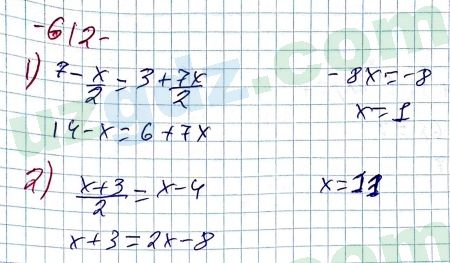 -612-
1) 7 - x/2 = 3 + 7x/2
-8x = -8
14 - x = 6 + 7x
x = 1
2) x+3/2 = x - 4
x = 11
x + 3 = 2x - 8